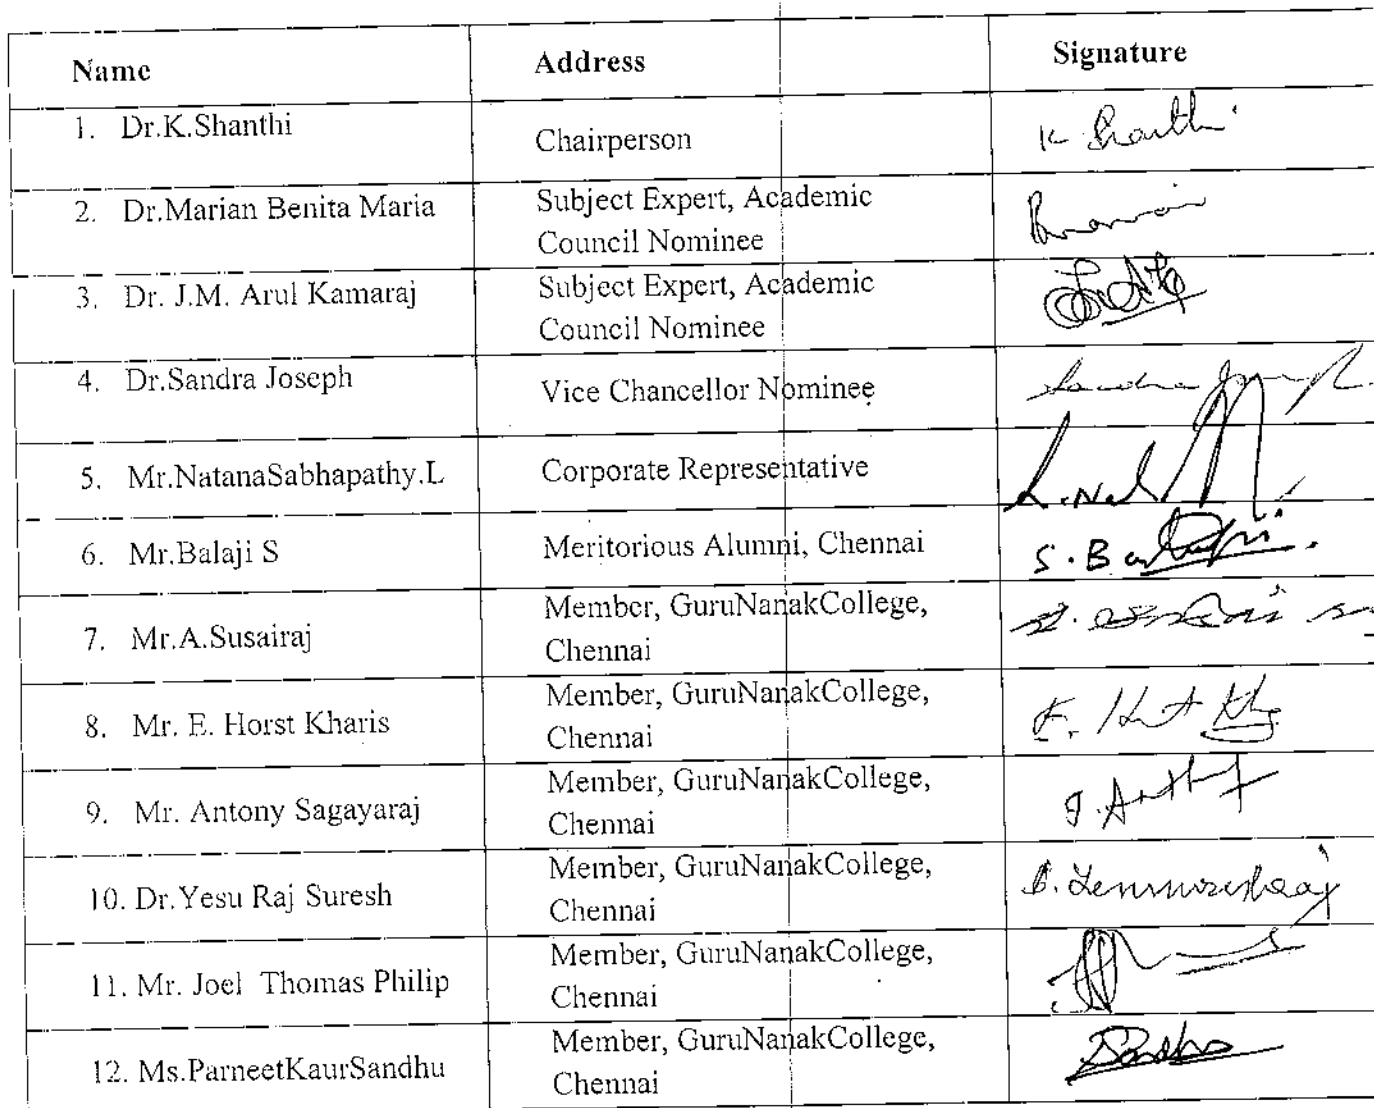 Name Address Signature
1. Dr.K.Shanthi Chairperson K. Shanthi
2. Dr.Marian Benita Maria Subject Expert, Academic
Council Nominee
3. Dr. J.M. Arul Kamaraj Subject Expert, Academic
Council Nominee
4. Dr.Sandra Joseph Vice Chancellor Nominee Sandra Joseph
5. Mr.NatanaSabhapathy.L Corporate Representative
6. Mr.Balaji S Meritorious Alumni, Chennai S. Balaji
7. Mr.A.Susairaj Member, GuruNanakCollege,
Chennai
8. Mr. E. Horst Kharis Member, GuruNanakCollege,
Chennai
9. Mr. Antony Sagayaraj Member, GuruNanakCollege,
Chennai
10. Dr.Yesu Raj Suresh Member, GuruNanakCollege,
Chennai
11. Mr. Joel Thomas Philip Member, GuruNanakCollege,
Chennai
12. Ms.ParneetKaurSandhu Member, GuruNanakCollege,
Chennai Sandhu